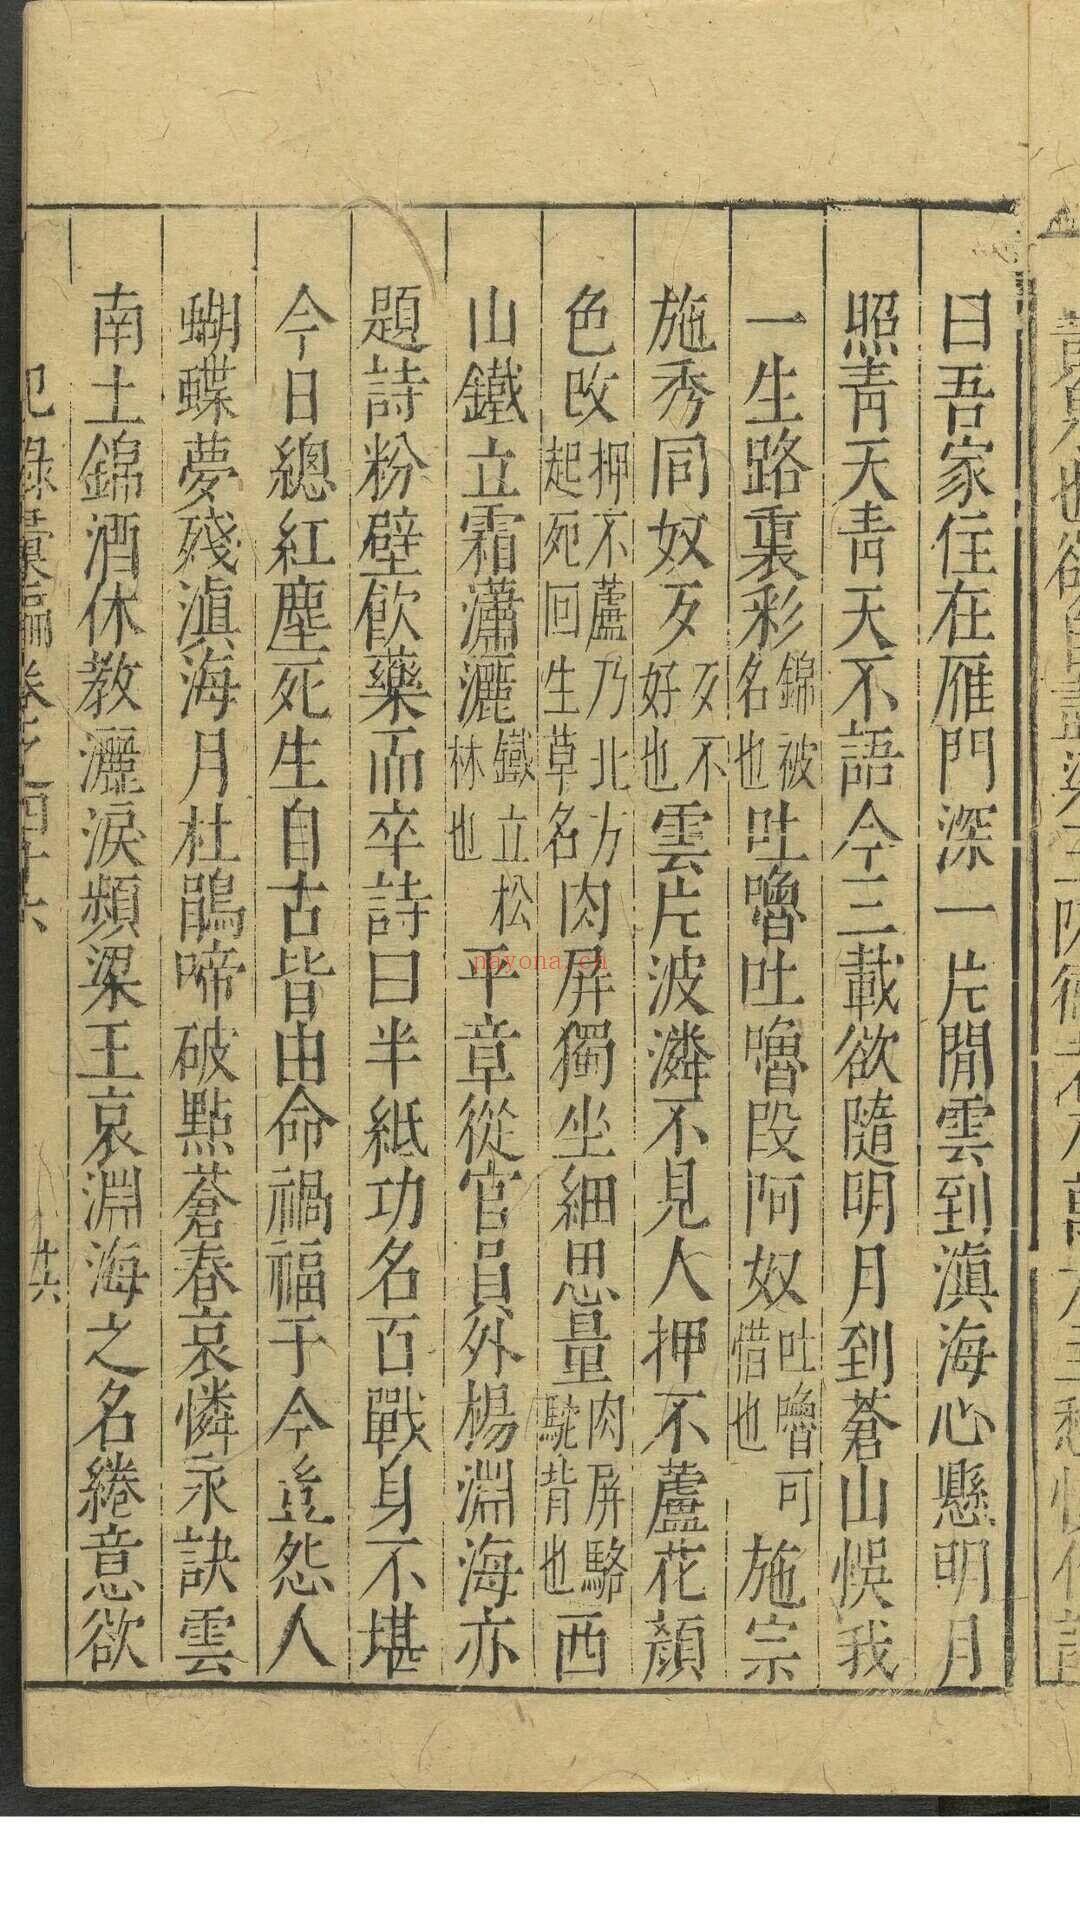 曰吾家住在雁門深一片閒雲到滇海心懸明月
照青天青天不語今三載欲隨明月到蒼山悞我
一生路裏彩錦被名也吐嚕吐嚕段阿奴吐嚕可惜也施宗
施秀同奴歹歹不好也雲片波潾不見人押不蘆花顏
色改押不蘆乃北方起死回生草名肉屏獨坐細思量肉屏駱駝背也西
山鐵立霜瀟灑鐵立松林也平章從官員外楊淵海亦
題詩粉壁飲藥而卒詩曰半紙功名百戰身不堪
今日總紅塵死生自古皆由命禍福于今豈怨人
蝴蝶夢殘滇海月杜鵑啼破點蒼春哀憐永訣雲
南土錦酒休教灑淚頻梁王哀淵海之名綣意欲
紀錄彙編卷之四十六
nayona.cn